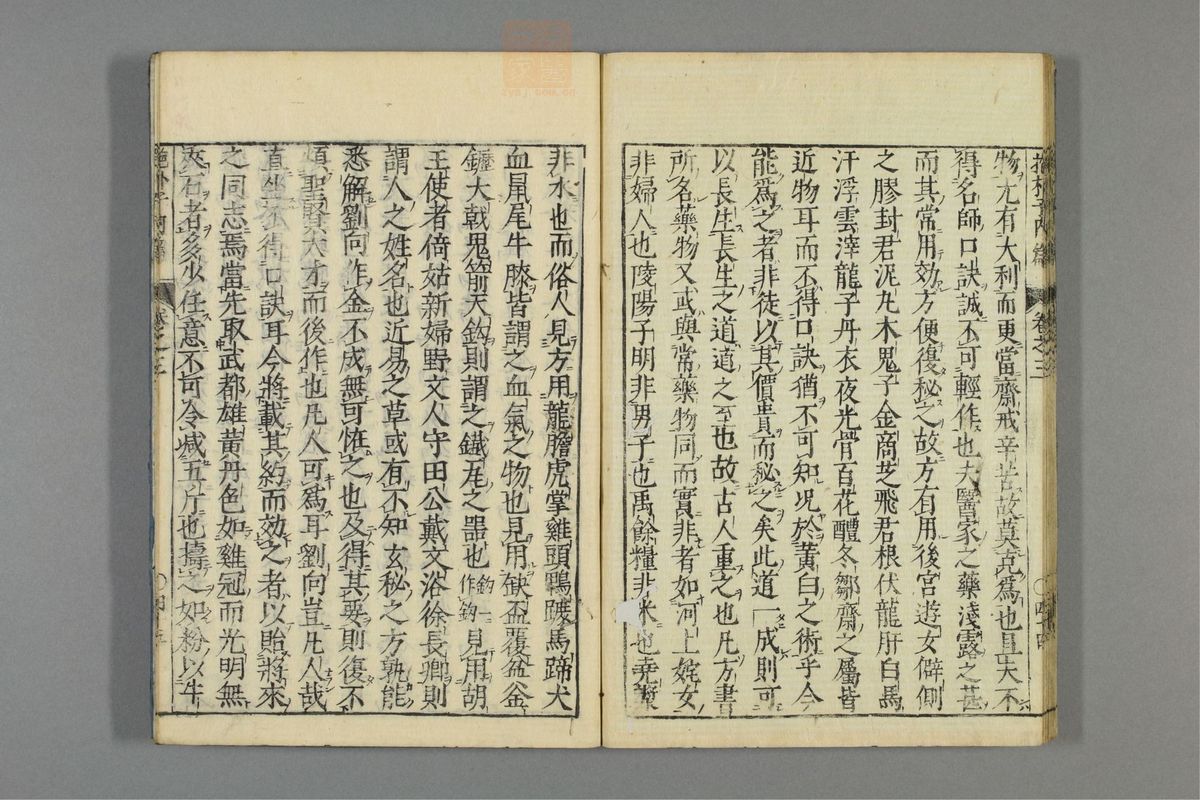 抱朴子內篇 卷之三 〇四十四
物尤有大利而更當齋戒辛苦故莫克爲也且夫不
得名師口訣誠不可輕作也夫醫家之藥淺露之甚
而其常用効方便復秘之故方有用後宮遊女僻側
之膠封君泥丸木鬼子金商芝飛君根伏龍肝白馬
汗浮雲滓龍子丹衣夜光骨百花醴冬鄒齋之屬皆
近物耳而不得口訣猶不可知況於黃白之術乎今
能爲之者非徒以其價貴而秘之矣此道一成則可
以長生長生之道道之至也故古人重之也凡方書
所名藥物又或與常藥物同而實非者如河上姹女
非婦人也陵陽子明非男子也禹餘糧非米也堯漿
非水也而俗人見方用龍膽虎掌雞頭鴨蹠馬蹄犬
血鼠尾牛膝皆謂之血氣之物也見用缺盃覆盆釜
䥶大戟鬼箭天鈎則謂之鐵瓦之器也鈎一作鉤見用胡
王使者倚姑新婦野文人守田公戴文浴徐長卿則
謂人之姓名也近易之草或有不知玄秘之方孰能
悉解劉向作金不成無可恠之也及得其要則復不
煩聖賢大才而後作也凡人可爲耳劉向豈凡人哉
直坐不得口訣耳今將載其約而効之者以貽將來
之同志焉當先取武都雄黃丹色如雞冠而光明無
夾石者多少任意不可令減五斤也擣之如粉以牛